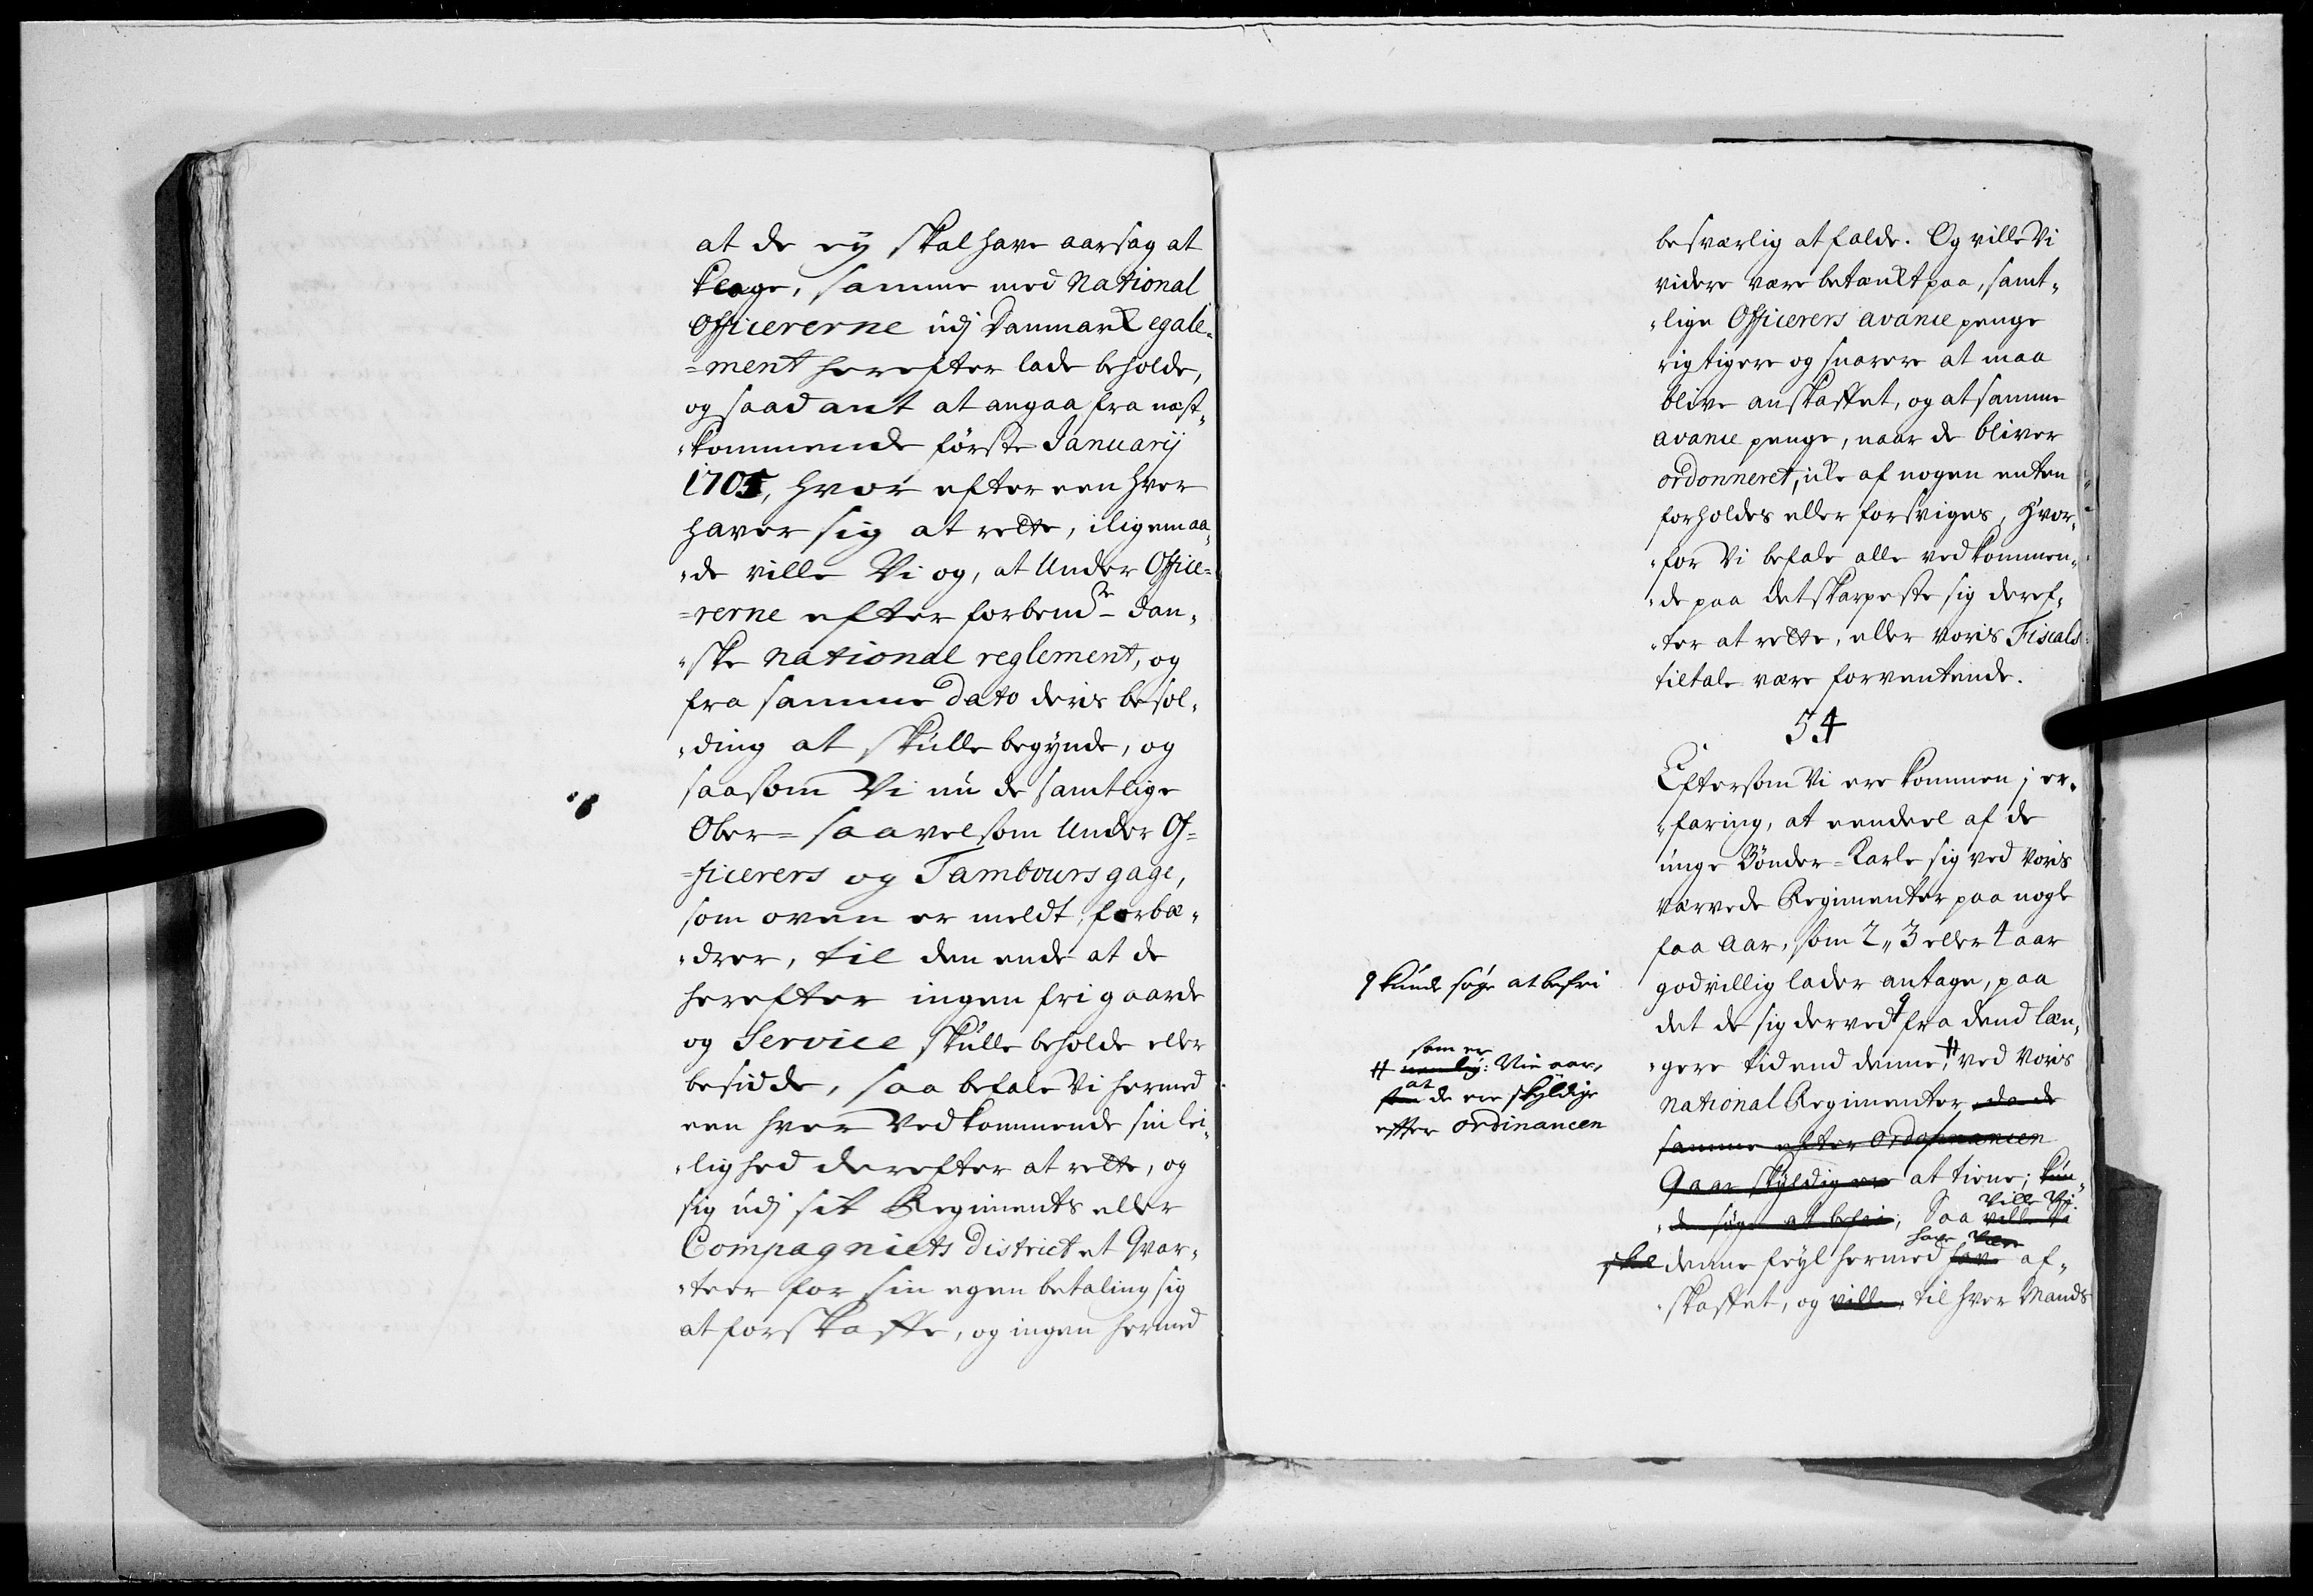 at de ey skal have aarsag at
klage, samme med National
Officererne udj Danmark egale=
=ment herefter lade beholde,
og saadant at angaa fra nest„
„kommende förste Januarij
1705, hvor efter een hver
haver sig at rette, iligemaa„
„de ville Vi og, at Under Office=
=rerne efter forbemdte dan„
„ske National reglement, og
fra samme Dato deris besol„
„ding at skulle begynde, og
saasom Vi nu de samtlige
Ober= saavelsom Under Of=
=ficerers og Tambours gage,
som oven er meldt, forbæ„
„drer, til den ende at de
herefter ingen frigaarde
og Service skulle beholde eller
besidde, saa befale Vi hermed
een hver Vedkommende sin lei„
„lighed derefter at rette, og
sig udj sit Regiments eller
Compagniets District et Qvar„
„teer for sin egen betaling sig
at forskaffe, og ingen hermed
besværlig at falde. Og ville Vi
videre være betænkt paa, samt„
„lige Officerers avance penge
rigtigere og snarere at maa
blive anskaffet, og at samme
avance penge, naar de bliver
ordonneret, icke af nogen enten
forholdes eller forsviges, hvor„
„for Vi befale alle vedkommen„
„de paa det skarpeste sig deref„
„ter at rette, eller voris Fiscals
tiltale være forventende.
54
Eftersom Vi ere kommen j er„
„faring, at eendeel af de
unge Bönder=Karle sig ved voris
værvede Regimenter paa nogle
faa Aar, som 2„ 3 eller 4 aar
godvillig lader antage, paa
det de sig derved fra dend læn„
„gere tid end denne, # ved voris
National Regimenter da de
samme efter Ordonnancen
9 aar skyldig ere at tiene; kun„
„de söge at befri; Saa ville Vi
ville Vi
have være
skal denne feyl hermed have af„
„skaffet, og ville til hver Mands
kunde söge at befri
som er
# nemlig: Nie aar,
at
som de ere skyldige
efter ordinancen